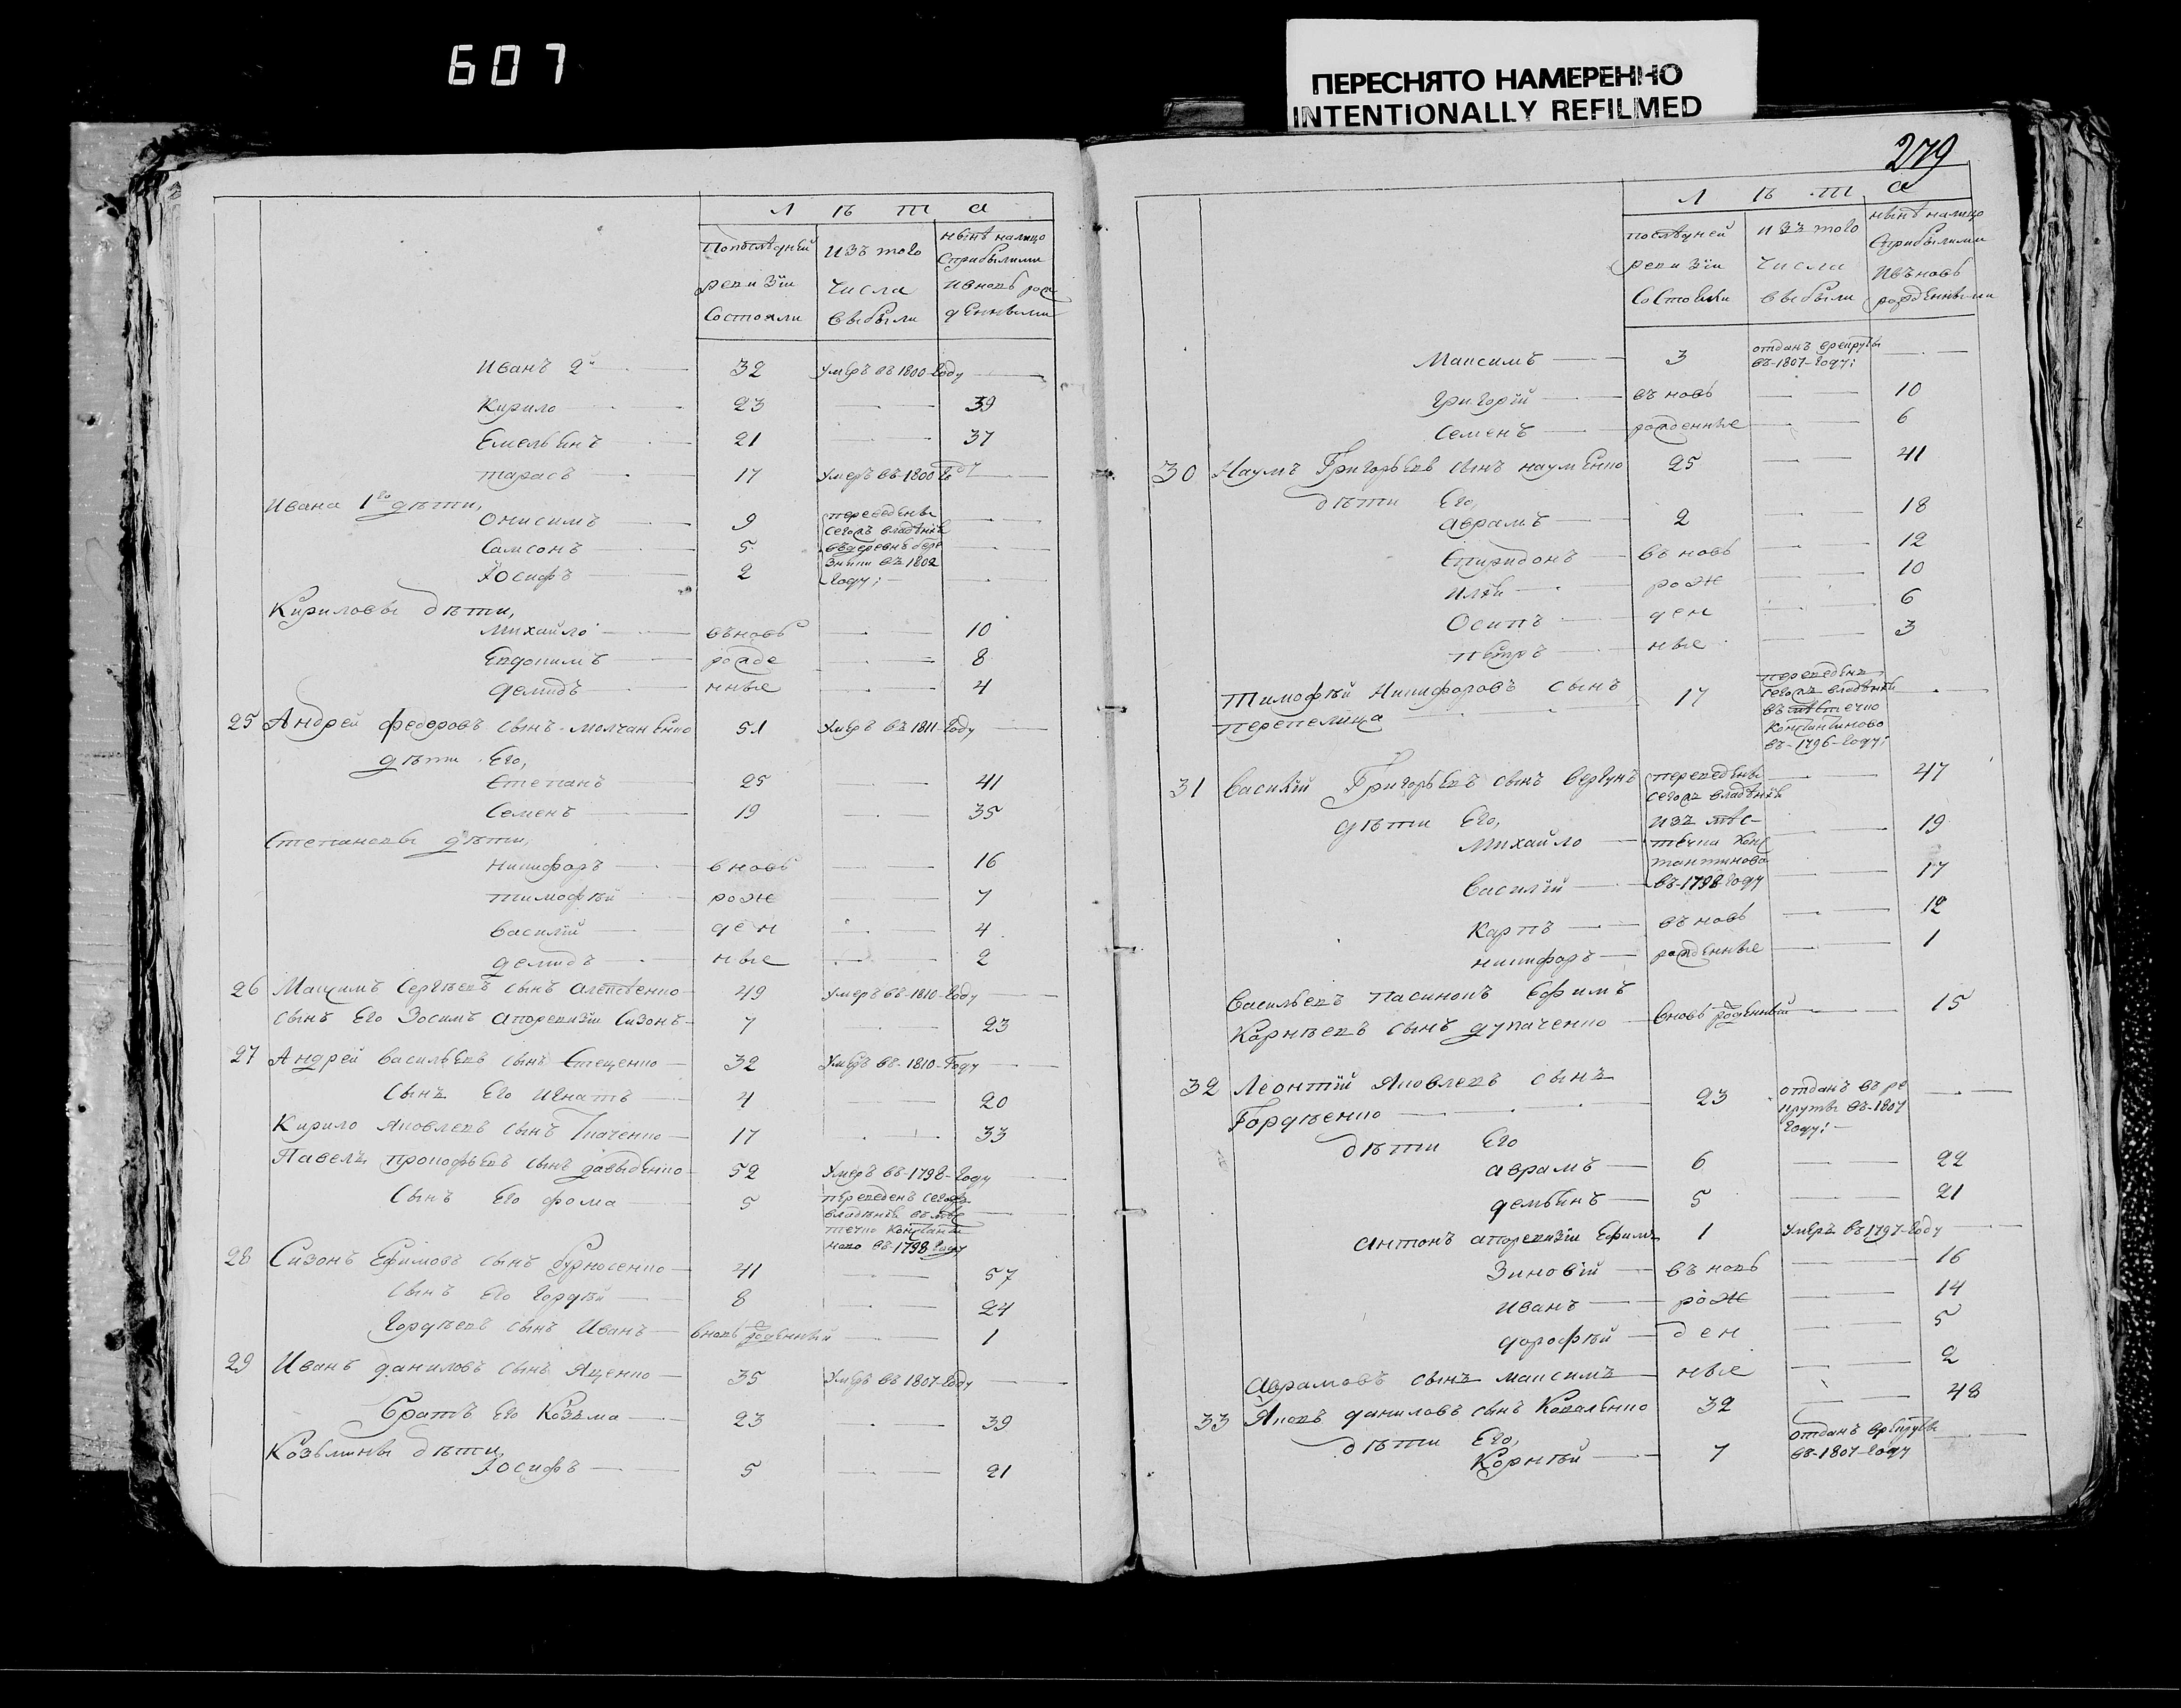 607
ПЕРЕСНЯТО НАМЕРЕННО
INTENTIONALLY REFILMED
279
Л ѣ т а
Попослѣдней ревизіи состояли
изъ того числа выбыли
нынѣ налицо сприбылыми ивновь рожденными
Иванъ 2й 32 Умеръ въ 1800 году
Кирило 23 39
Емельянъ 21 37
Тарасъ 17 Умеръ въ 1800 году
Ивана 1го дѣти,
Онисимъ 9 переведены
сегожъ владѣнія
Самсонъ 5 въдеревнѣ
Іосифъ 2 въ 1802
году:
Кириловы дѣти,
Михайло въновь 10
Евдокимъ рожде 8
Демидъ нные 4
25 Андрей Федоровъ сынъ Молчаненко 51 Умеръ въ 1811 году
дѣти Его,
Степанъ 25 41
Семенъ 19 35
Степановы дѣти,
Никифоръ вновь 16
Тимофѣй рож 7
Василій ден 4
Демидъ ные 2
26 Максимъ Сергѣевъ сынъ 49 Умеръ въ 1810 году
сынъ Его Зосимъ апоревизіи Сизонъ 7 23
27 Андрей Васильевъ сынъ Стеценко 32 Умеръ въ 1810 Году
Сынъ Его Игнатъ 4 20
Кирило Яковлевъ сынъ Ткаченко 17 33
Павелъ Прокофьевъ сынъ Давыденко 52 Умеръ въ 1798 году
Сынъ Его Фома 5 переведенъ сегожъ
владѣнія въ мѣс
течко Константи
ново въ 1798 году
28 Сизонъ Ефимовъ сынъ Бурносенко 41 57
сынъ Его Гордѣй 8 24
Гордѣевъ сынъ Иванъ вновь рожденный 1
29 Иванъ Даниловъ сынъ Яценко 35 Умеръ въ 1807 году
Братъ Его Козьма 23 39
Козьмины дѣти,
Іосифъ 5 21
Л ѣ т а
послѣдней ревизіи состояли
изъ того числа выбыли
нынѣ налицо сприбылими ивъновь рожденными
Максимъ 3 отданъ врекруты
въ 1807 году:
Григорій въновь 10
Семенъ рожденные 6
30 Наумъ Григорьевъ сынъ Науменко 25 41
дѣти Его,
Аврамъ 2 18
Спиридонъ въновь 12
Илья рож 10
Осипъ ден 6
Петръ ные 3
Тимофѣй Никифоровъ сынъ 17 переведенъ
сегожъ владѣнія
Перепелица въ мѣстечко
Константиново
въ 1796 году:
31 Василій Григорьевъ сынъ Вергунъ переведены 47
сегожъ владѣнія
дѣти Его, изъ мѣс
Михайло течка Конс 19
тантинова
Василій въ 1798 году 17
Карпъ въновь 12
Никифоръ рожденные 1
Васильевъ пасинокъ Ефимъ
Корнѣевъ сынъ вновь рожденный 15
32 Леонтій Яковлевъ сынъ
Гордѣенко 23 отданъ въ ре
круты въ 1807
году:
дѣти Его
Аврамъ 6 22
Демьянъ 5 21
Антонъ апоревизіи Ефимъ 1 Умеръ въ 1797 году
Зиновій въновь 16
Иванъ рож 14
Дорофѣй ден 5
Аврамовъ сынъ Максимъ ные 2
33 Яковъ Даниловъ сынъ Коваленко 32 48
дѣти Его,
Корнѣй 7 отданъ врекруты
въ 1807 году